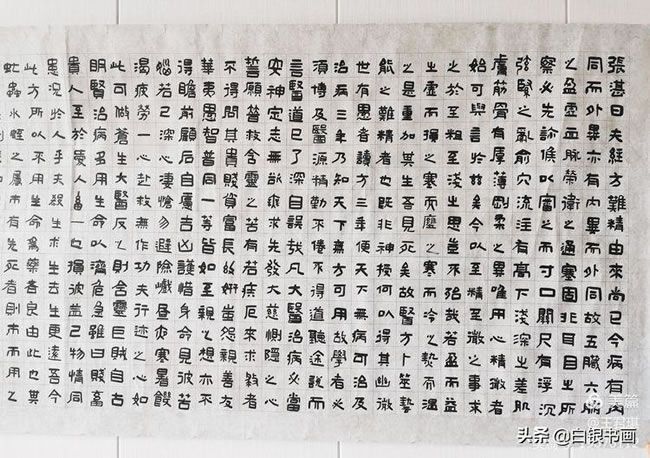 張湛曰夫經方難精由來尚已今病有内
同而外異亦有内異而外同故五臟六腑
之盈虛血脉榮衛之通塞固非目耳所
察必先診候以審之而寸口關尺有浮沉
弦緊之亂俞穴流注有高下浅深之差肌
膚筋骨有厚薄剛柔之異唯用心精微者
始可與言於兹矣今以至精至微之事求
之於至粗至浅之思豈不殆哉若盈而益
之虛而損之塞而壅之寒而冷之熱而温
之是重加其生吾見死矣故醫方卜筮藝
能之難精者也既非神授何得其幽微
世有愚者讀方三年便天下無病可治及
治病三年乃知天下無方可用故學者必
須博及醫源精勤不倦不得道聽途說而
言醫道已了深自誤哉凡大醫治病必當
安神定志無欲無求先發大慈惻隱之心
誓願普救含靈之苦若有疾厄來求救者
不得問其貴賤貧富長幼妍蚩怨親善友
華夷愚智普同一等皆如至親之想亦不
得瞻前顧后自慮吉凶護惜身命見彼苦
惱若己深心淒愴勿避險巇晝夜寒暑饑
渴疲勞一心赴救無作功夫行迹之心如
此可做蒼生大醫反之則含靈巨賊自古
明賢治病多用生命以濟危急雖曰賤畜
貴人至於愛人畜一也損彼益己物情同
患況於人乎夫殺生求生去生更遠吾今
此方所以不用生命為藥者良由此也其
虻蟲水蛭之屬市有先死者則市而用之
美篇
头条 @白银书画